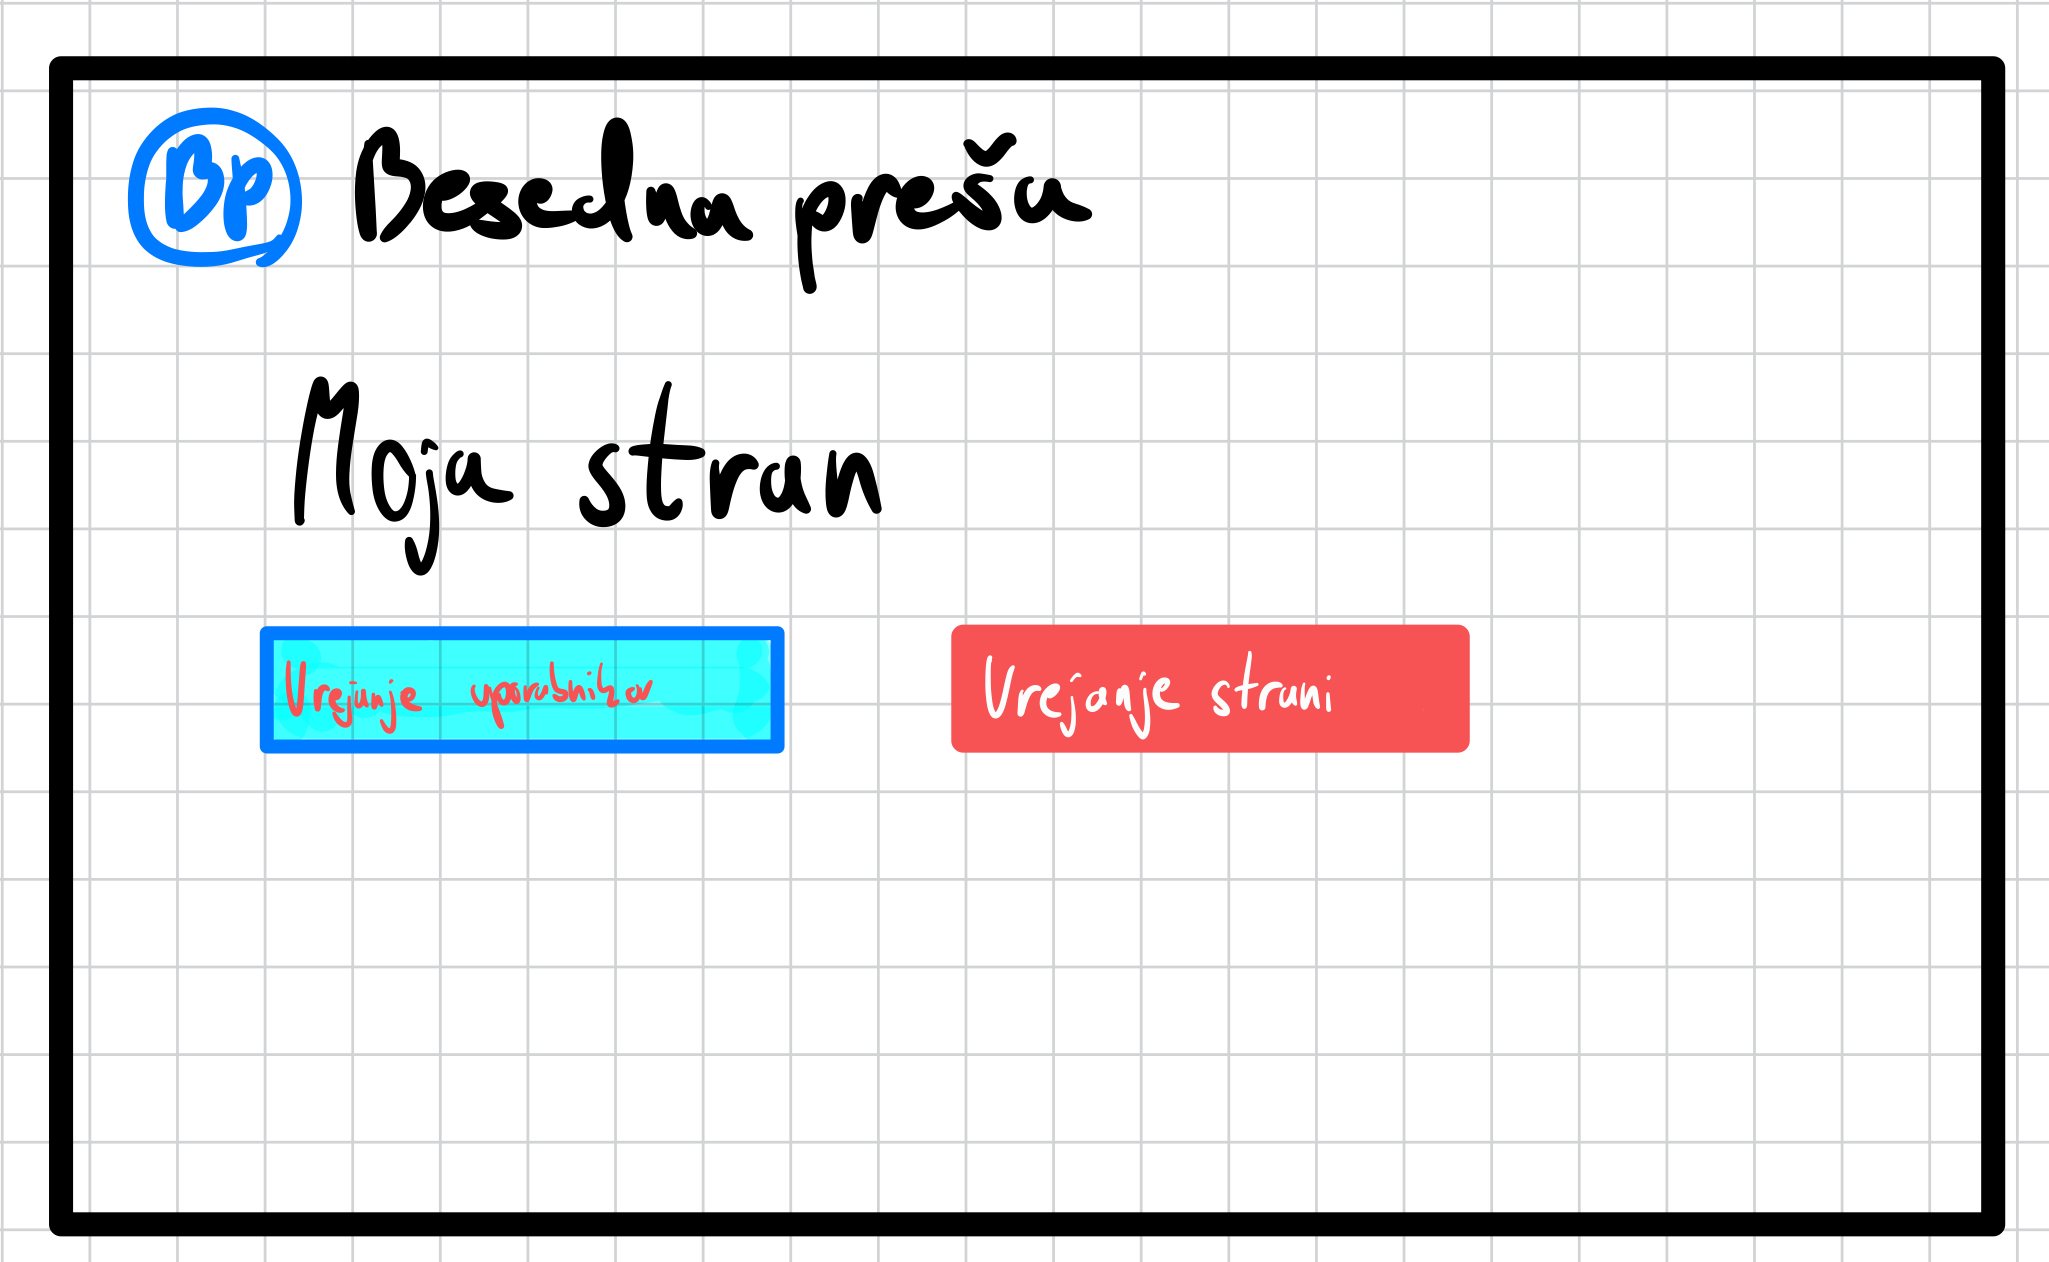 Bp Besedna preša
Moja stran
Urejanje uporabnikov
Urejanje strani